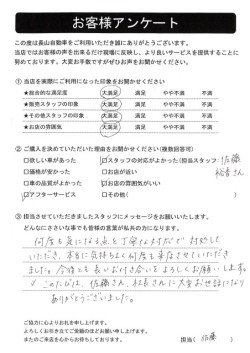 お客様アンケート
この度は長山自動車をご利用いただき誠にありがとうございます。
当店ではお客様の声を出来るだけ現場に反映し、より良いサービスを提供することに
努めております。大変お手数ですがぜひお声をお聞かせください。
① 当店を実際にご利用になった印象をお聞かせください
★総合的な満足度 大満足 満足 やや不満 不満
★販売スタッフの印象 大満足 満足 やや不満 不満
★その他スタッフの印象 大満足 満足 やや不満 不満
★お店の雰囲気 大満足 満足 やや不満 不満
② ご購入を決めていただいた理由をお聞かせください(複数回答可)
□欲しい車があった □スタッフの対応がよかった(担当スタッフ: 佐藤
□価格が安かった □お店が近い さん)
□車の品質がよかった □お店の雰囲気がいい
□アフターサービス □その他(
③ 担当させていただきましたスタッフにメッセージをお願いいたします。
どんなにささいな事でも皆様の言葉が私の力になります。
何度も気になる点を丁寧な対応で対処して
いただき、本当に気持ちよく何度も来店させていただき
ました。今後とも長いお付き合いをよろしくお願いします。
このたびは、佐藤さん、社長さんに大変お世話になり
ありがとうございました。
ご協力に心よりお礼を申し上げます。
よろしくお引き立てご愛顧のほどお願い申し上げます。
またのご来店を心からお待ちしております。 担当( 佐藤 )